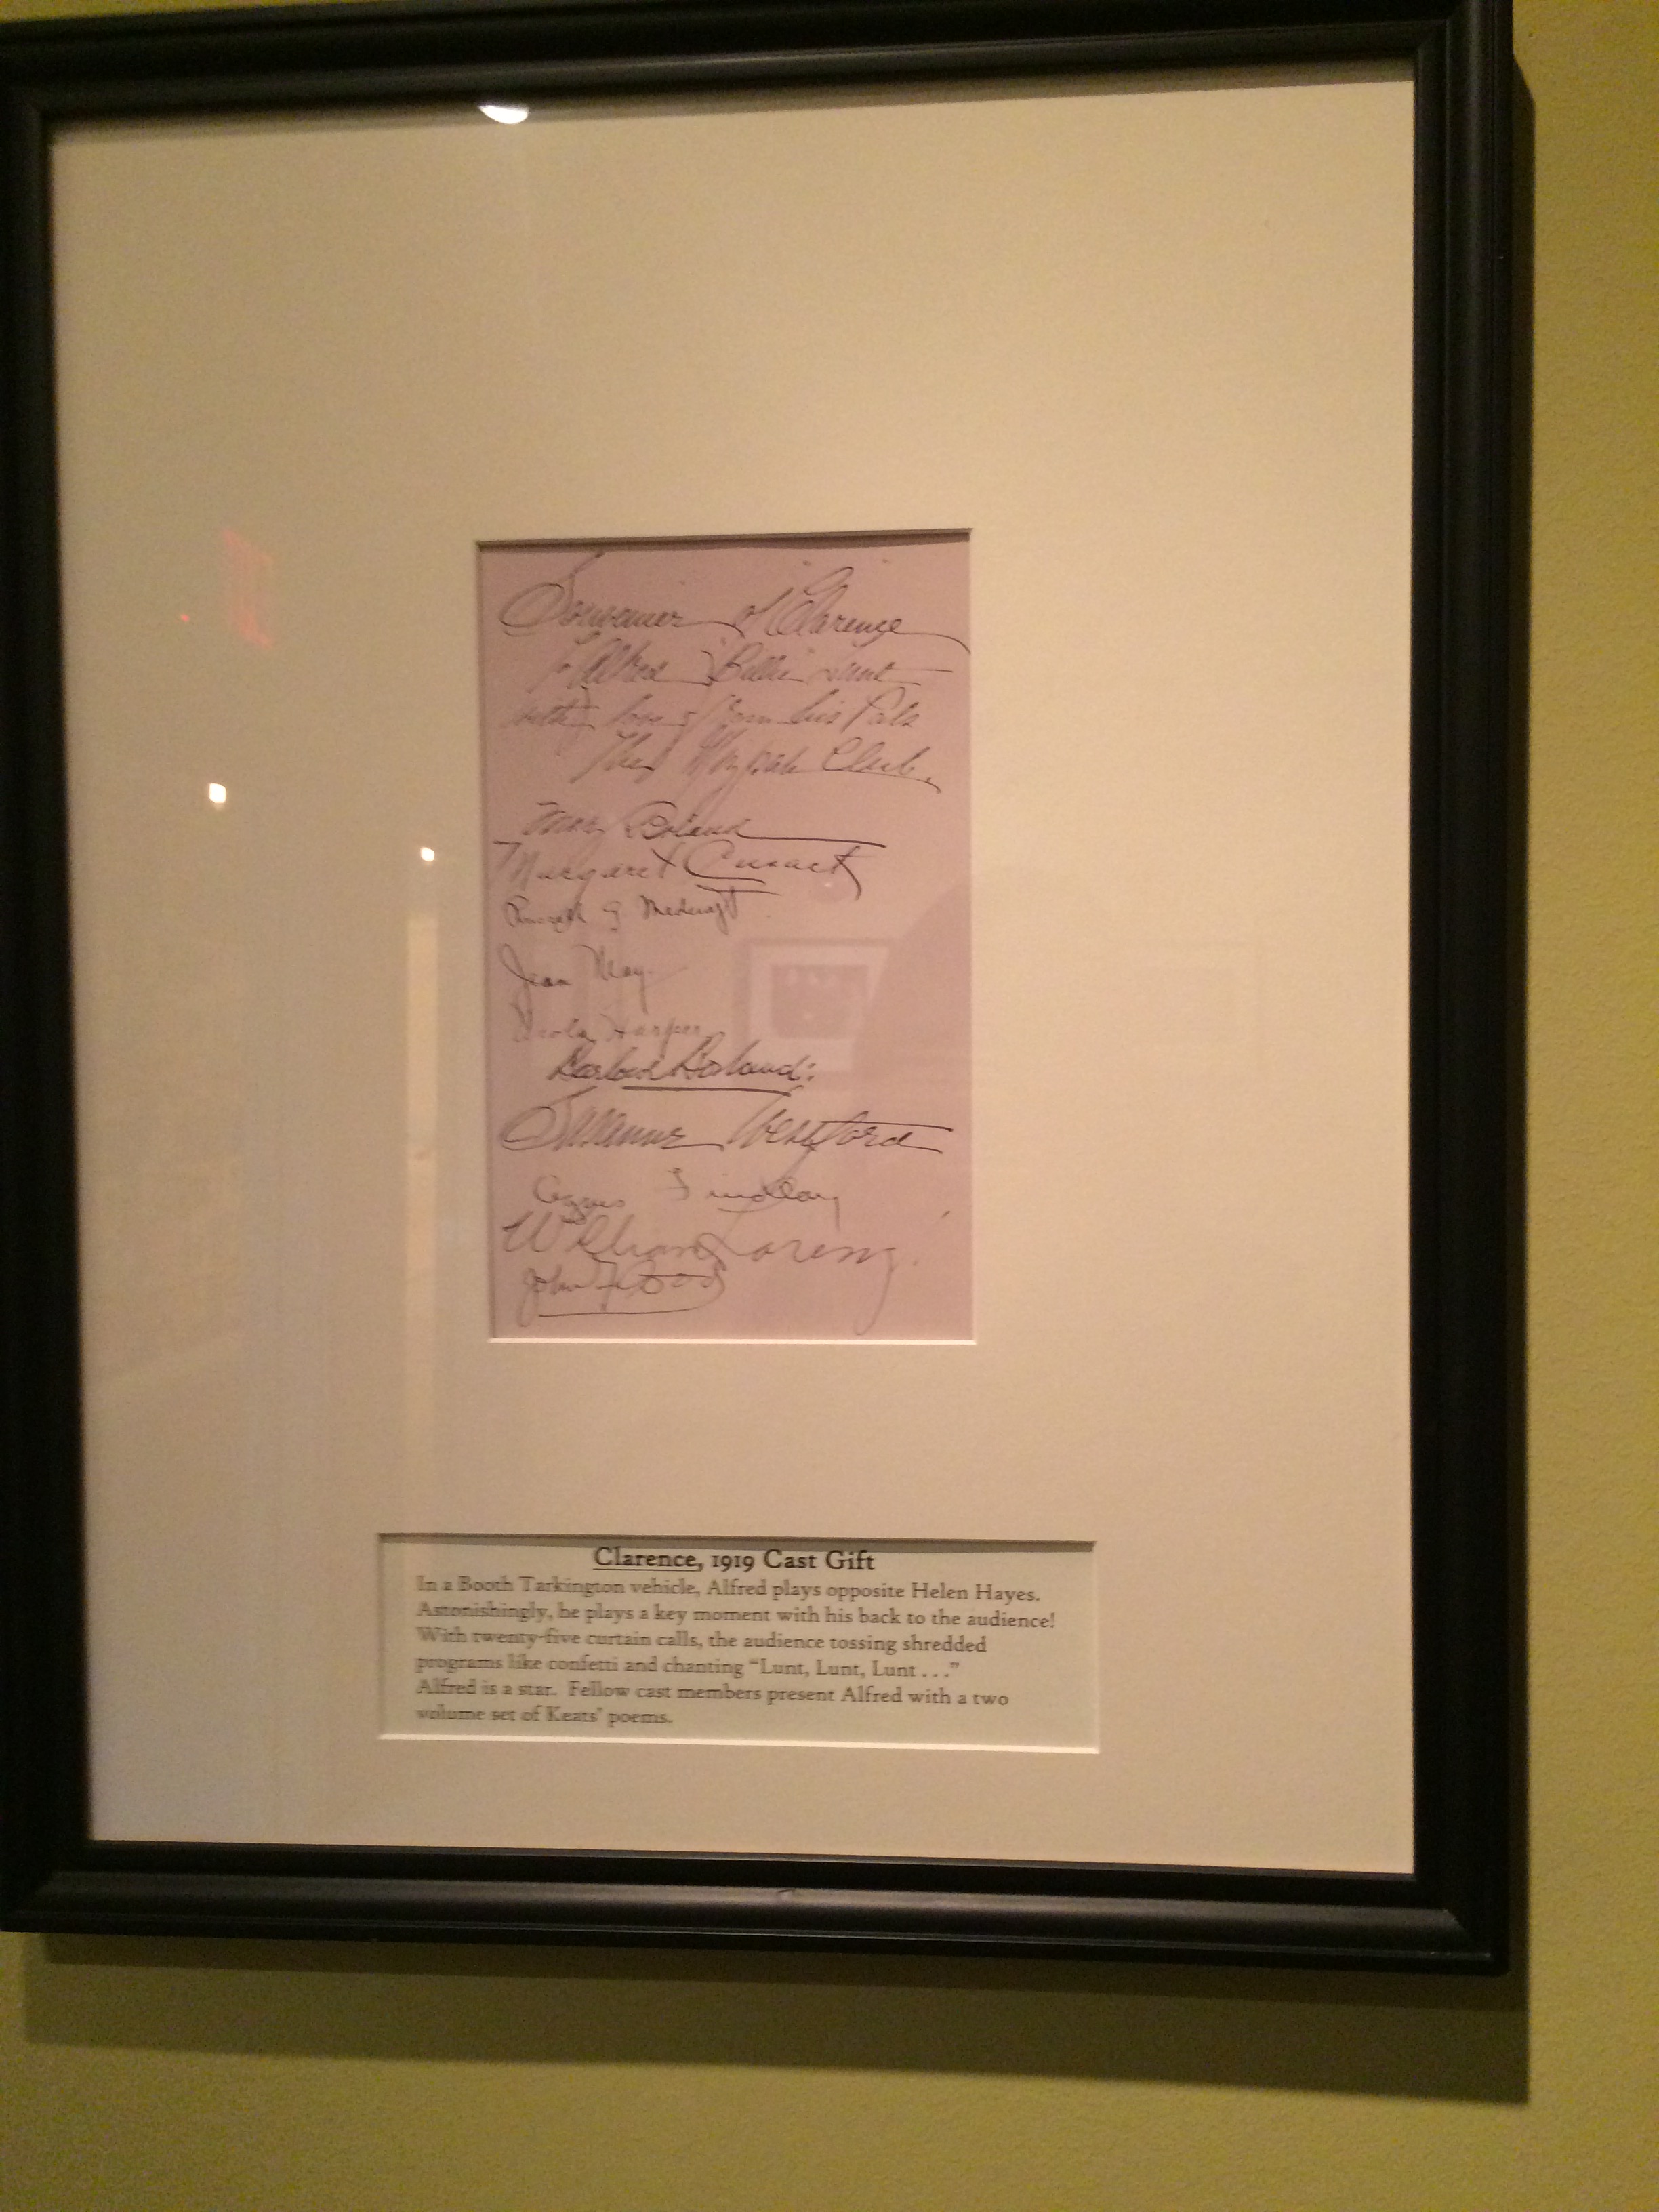 Souvenir of "Clarence"
to Alfred "Billie" Lunt
with love from his Pals
The Mizpah Club.
Mary Boland
Margaret Cusack
G. Medcraft
Jean May
Harper
Barlowe Borland:
Susanne Westford
Agnes Findlay
William Loreng.
John Flood
Clarence, 1919 Cast Gift
In a Booth Tarkington vehicle, Alfred plays opposite Helen Hayes.
Astonishingly, he plays a key moment with his back to the audience!
With twenty-five curtain calls, the audience tossing shredded
programs like confetti and chanting “Lunt, Lunt, Lunt . . .”
Alfred is a star. Fellow cast members present Alfred with a two
volume set of Keats’ poems.